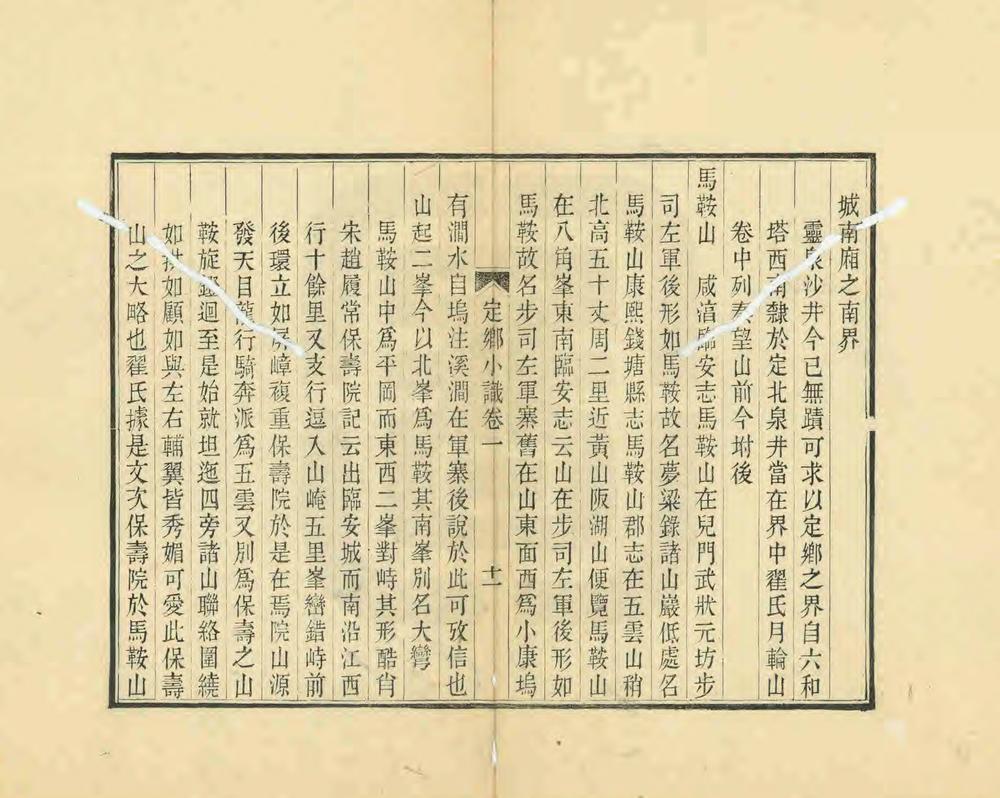 城南廂之南界
靈泉沙井今已無蹟可求以定鄉之界自六和
塔西南隸於定北泉井當在界中翟氏月輪山
卷中列秦望山前今坿後
馬鞍山　咸淳臨安志馬鞍山在兒門武狀元坊步
司左軍後形如馬鞍故名夢粱錄諸山巖低處名
馬鞍山康熙錢塘縣志馬鞍山郡志在五雲山稍
北高五十丈周二里近黃山阪湖山便覽馬鞍山
在八角峯東南臨安志云山在步司左軍後形如
馬鞍故名步司左軍寨舊在山東面西爲小康塢
定鄉小識卷一
十一
有澗水自塢注溪澗在軍寨後說於此可攷信也
山起二峯今以北峯爲馬鞍其南峯別名大彎
馬鞍山中爲平岡而東西二峯對峙其形酷肖
宋趙履常保壽院記云出臨安城而南沿江西
行十餘里又支行逗入山崦五里峯巒錯峙前
後環立如屏嶂複重保壽院於是在焉院山源
發天目龍行騎奔派爲五雲又別爲保壽之山
鞍旋鐙迴至是始就坦迤四旁諸山聯絡圍繞
如拱如顧如與左右輔翼皆秀媚可愛此保壽
山之大略也翟氏據是文次保壽院於馬鞍山